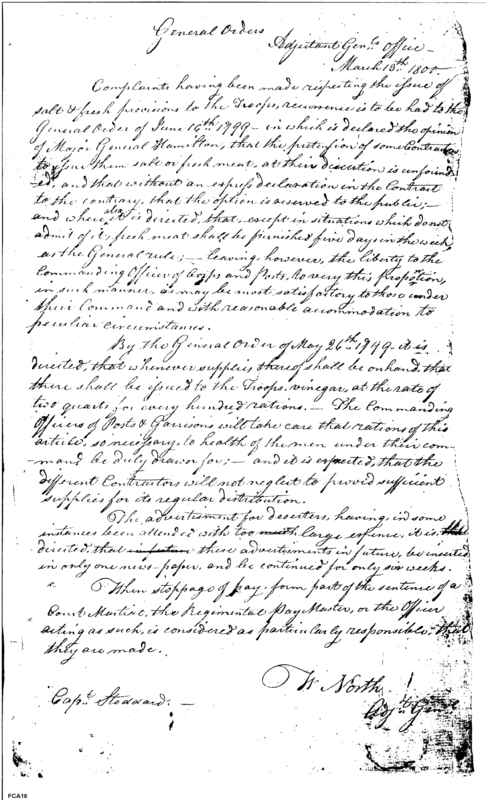 General Orders
Adjutant Genls Office —
March 13th 1800
Complaints having been made respecting the issue of
salt & fresh provisions to the Troops, recurrence is to be had to the
General Order of June 10th 1799 — in which is declared the opinion
of Major General Hamilton, that the pretension of some Contractors
to issue them salt or fresh meat, at their discretion is unfound
ed, and that without an express declaration in the Contract
to the contrary, that the option is reserved to the public; —
and where also it is directed, that, except in situations which do not
admit of it, fresh meat shall be furnished five days in the week
as the General rule; — leaving, however, the liberty to the
Commanding Officer of Corps and Posts, to very this proportion,
in such manner, as may be most satisfactory to those under
their Command and with reasonable accommodation to
peculiar circumstances.
By the General Order of May 26th 1799 it is
directed, that whenever supplies thereof shall be on hand, that
there shall be issued to the Troops, vinegar, at the rate of
two quarts for every hundred rations. — The Commanding
Officers of Posts & Garrisons will take care that rations of this
article, so necessary to health of the men under their com-
-mand be duly drawn for; — and it is expected, that the
different Contractors will not neglect to provid sufficient
supplies for its regular distribution.
The advertisment for deserters, having, in some
instances been attended with too much large expense, it is
directed, that in future these advertisments in future, be inserted
in only one news-paper, and be continued for only six weeks.
When stoppage of pay, form part of the sentence of a
Court Martial, the Regimental Pay Master, or the Officer
acting as such, is considered as particularly responsible that
they are made.
W North
Adjt. Genl
Capt. Stoddard. —
FCA16